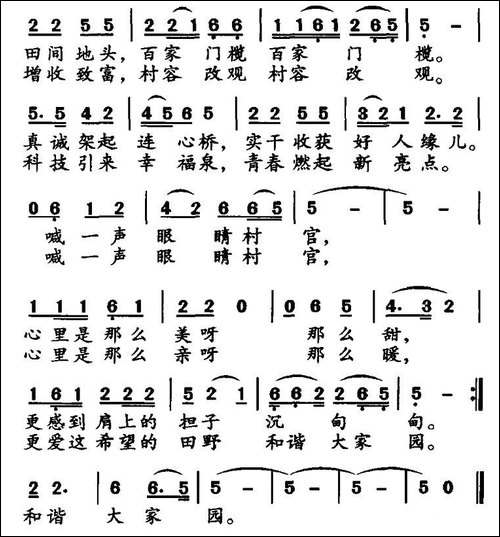 2 2 5 5 | 2 2 1 6 6 | 1 1 6 1 2 6 5 | 5 - |
田间 地头, 百家 门 槛 百家 门 槛。
增收 致富, 村容 改观 村容 改 观。
5. 5 4 2 | 4 5 6 5 | 2 2 5 5 | 3 2 1 2. 2 |
真诚架起 连 心桥, 实干收获 好 人缘儿。
科技引来 幸 福泉, 青春燃起 新 亮点。
0 6 1 2 | 4 2 6 6 5 | 5 - | 5 - |
喊 一声 眼 睛村 官,
喊 一声 眼 睛村 官,
1 1 1 6 1 | 2 2 0 | 0 6 5 | 4. 3 2 |
心里是那么 美呀 那么 甜,
心里是那么 亲呀 那么 暖,
1 6 1 2 2 2 | 5 2 1 | 6 6 2 2 6 5 | 5 - :|
更感到肩上的 担子 沉 甸 甸。
更爱这希望的 田野 和谐 大家 园。
2 2. | 6 6. 5 | 5 - | 5 - | 5 - | 5 0 ‖
和谐 大 家 园。